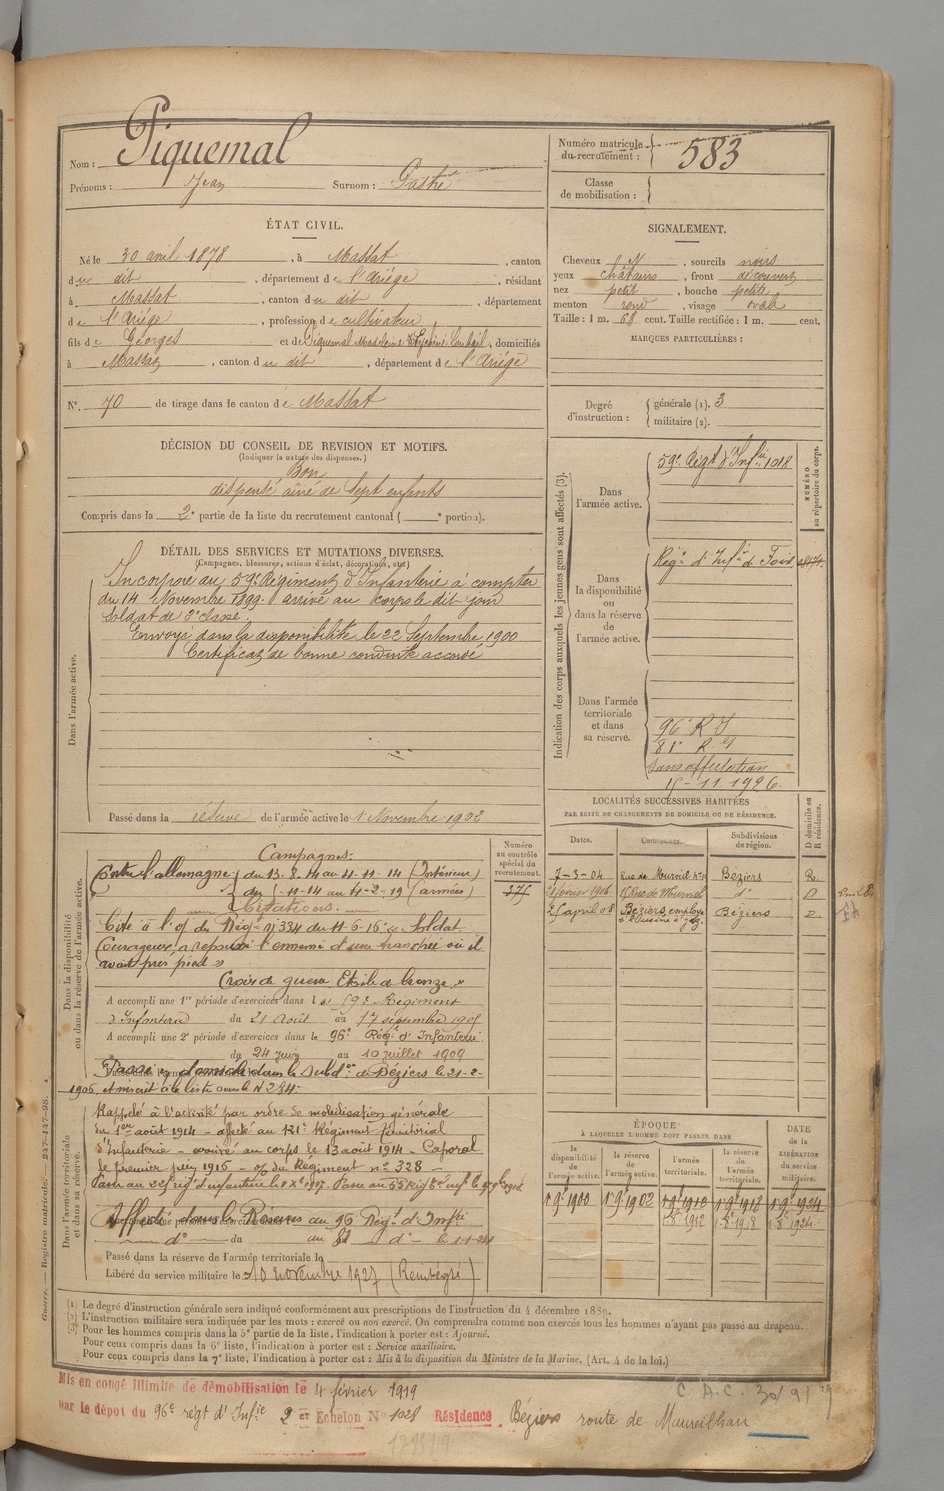 Nom : Piquemal
Prénoms : Jean Surnom :
Numéro matricule du recrutement : 583
Classe de mobilisation :
ÉTAT CIVIL.
Né le 30 avril 1878, à Massat, canton
du dit, département de l'Ariége, résidant
à Massat, canton du dit, département
de l'Ariége, profession de cultivateur
fils de Georges et de Piquemal Madeleine, domiciliés
à Massat, canton du dit, département de l'Ariége
N° 70 de tirage dans le canton de Massat
SIGNALEMENT.
Cheveux N, sourcils noirs
yeux châtains, front découvert
nez petit, bouche petite
menton rond, visage ovale
Taille : 1 m. 68 cent. Taille rectifiée : 1 m. cent.
MARQUES PARTICULIÈRES :
Degré d'instruction : générale (1). 3
militaire (2).
DÉCISION DU CONSEIL DE REVISION ET MOTIFS.
(Indiquer la nature des dispenses.)
Bon
dispensé aîné de sept enfants
Compris dans la 2e partie de la liste du recrutement cantonal ( e portion).
DÉTAIL DES SERVICES ET MUTATIONS DIVERSES.
(Campagnes, blessures, actions d'éclat, décorations, etc.)
Dans l'armée active.
Incorporé au 59e Régiment d'Infanterie à compter
du 14 Novembre 1899. arrivé au corps le dit jour
Soldat de 2e classe.
Envoyé dans la disponibilité le 22 Septembre 1900
Certificat de bonne conduite accordé
Passé dans la réserve de l'armée active le 1 Novembre 1902
Indication des corps auxquels les jeunes gens sont affectés (3).
NUMÉRO au répertoire du corps.
Dans l'armée active.
59e Régt d'Infie 1018
Dans la disponibilité ou dans la réserve de l'armée active.
Régt d'Infie de Foix
Dans l'armée territoriale et dans sa réserve.
96e R I
81e R
Sans affectation
15-11-1926
LOCALITÉS SUCCESSIVES HABITÉES
PAR SUITE DE CHANGEMENTS DE DOMICILE OU DE RÉSIDENCE.
D domicile ou R résidence.
Dates. Communes. Subdivisions de région.
7-3-04 Rue de Béziers R
février 1906 Rue de d° D
25 avril 08 Béziers, employé à l'usine à gaz Béziers
Dans la disponibilité ou dans la réserve de l'armée active.
Numéro au contrôle spécial du recrutement.
375
Campagnes :
Contre l'allemagne : du 13.8.14 au 4-11-14 (Intérieur)
du 5-11-14 au 4-2-19 (armées)
Citations.
Cité à l'o/ du Régt n° 334 du 11 6-16 « Soldat
Courageux a repoussé l'ennemi d'une tranchée où il
avait pris pied »
Croix de guerre Etoile de bronze »
A accompli une 1re période d'exercices dans le 59e Régiment
d'Infanterie du 21 Août au 17 septembre 1905
A accompli une 2e période d'exercices dans le 96e Régt d'Infanterie
du 24 juin au 10 juillet 1909
Passé domicile dans la Subdon de Béziers le 21-2-
1906, et inscrit à la liste sous le N° 234.
Dans l'armée territoriale et dans sa réserve.
Rappelé à l'activité par ordre de mobilisation générale
du 1er août 1914 - affecté au 121e Régiment territorial
d'Infanterie - arrivé au corps le 13 août 1914 - Caporal
le premier juin 1916 - o/ du Régiment n° 328 -
Affecté dans la Réserve au 96 Régt d'Infie
d° du au 81 d° le
Passé dans la réserve de l'armée territoriale le
Libéré du service militaire le 10 novembre 1927
ÉPOQUE
À LAQUELLE L'HOMME DOIT PASSER DANS
DATE de la LIBÉRATION du service militaire.
la disponibilité de l'armée active. la réserve de l'armée active. l'armée territoriale. la réserve de l'armée territoriale.
1 9e 1900 1 9e 1902 1 9e 1912 1 9e 1918 1 9e 1924
1912 1918 1924
(1) Le degré d'instruction générale sera indiqué conformément aux prescriptions de l'instruction du 4 décembre 1889.
(2) L'instruction militaire sera indiquée par les mots : exercé ou non exercé. On comprendra comme non exercés tous les hommes n'ayant pas passé au drapeau.
(3) Pour les hommes compris dans la 5e partie de la liste, l'indication à porter est : Ajourné.
Pour ceux compris dans la 6e liste, l'indication à porter est : Service auxiliaire.
Pour ceux compris dans la 7e liste, l'indication à porter est : Mis à la disposition du Ministre de la Marine. (Art. 4 de la loi.)
Guerre. — Registre matricule. — 247-147-98.
Mis en congé illimité de démobilisation le 4 février 1919
par le dépôt du 96e régt d'Infie 2 er Echelon N° 1028 Résidence Béziers route de Maureilhan
C. A. C.